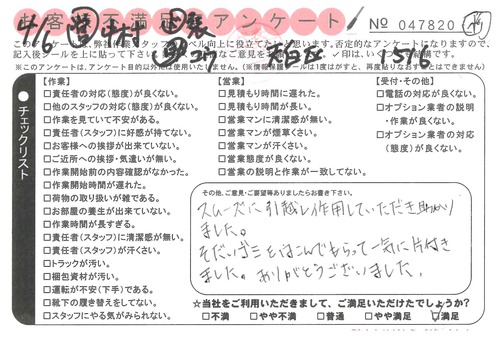 お客様不満足度アンケート
№ 047820
4/6
中村
大田区
1516
このアンケートは、弊社作業スタッフのレベル向上に役立てたいと思います。否定的なアンケートになりますので、
※このアンケートは、アンケート目的以外は使用いたしません。
チェックリスト
【作業】
□責任者の対応(態度)が良くない。
□他のスタッフの対応(態度)が良くない。
□作業を見ていて不安がある。
□責任者(スタッフ)に好感が持てない。
□お客様への挨拶が出来ていない。
□ご近所への挨拶・気遣いが無い。
□作業開始前の内容確認がなかった。
□作業開始時間が遅れた。
□荷物の取り扱いが雑である。
□お部屋の養生が出来ていない。
□作業時間が長すぎる。
□責任者(スタッフ)に清潔感が無い。
□責任者(スタッフ)が汗くさい。
□トラックが汚い。
□梱包資材が汚い。
□運転が不安(下手)である。
□靴下の履き替えをしてない。
□スタッフにやる気がみられない。
【営業】
□見積もり時間に遅れた。
□見積もり時間が長い。
□営業マンに清潔感が無い。
□営業マンが煙草くさい。
□営業マンが汗くさい。
□営業態度が良くない。
□営業の説明と作業が一致してない。
【受付・その他】
□電話の対応が良くない。
□オプション業者の説明
・作業が良くない。
□オプション業者の対応
(態度)が良くない。
その他、ご意見・ご要望等ありましたらお書き下さい。
スムーズに引越し作用していただき助かり
ました。
そだいゴミとはこんでもらって一気に片付き
ました。ありがとうございました。
☆当社をご利用いただきまして、ご満足いただけたでしょうか?
□不満 □やや不満 □普通 □やや満足 ☑満足